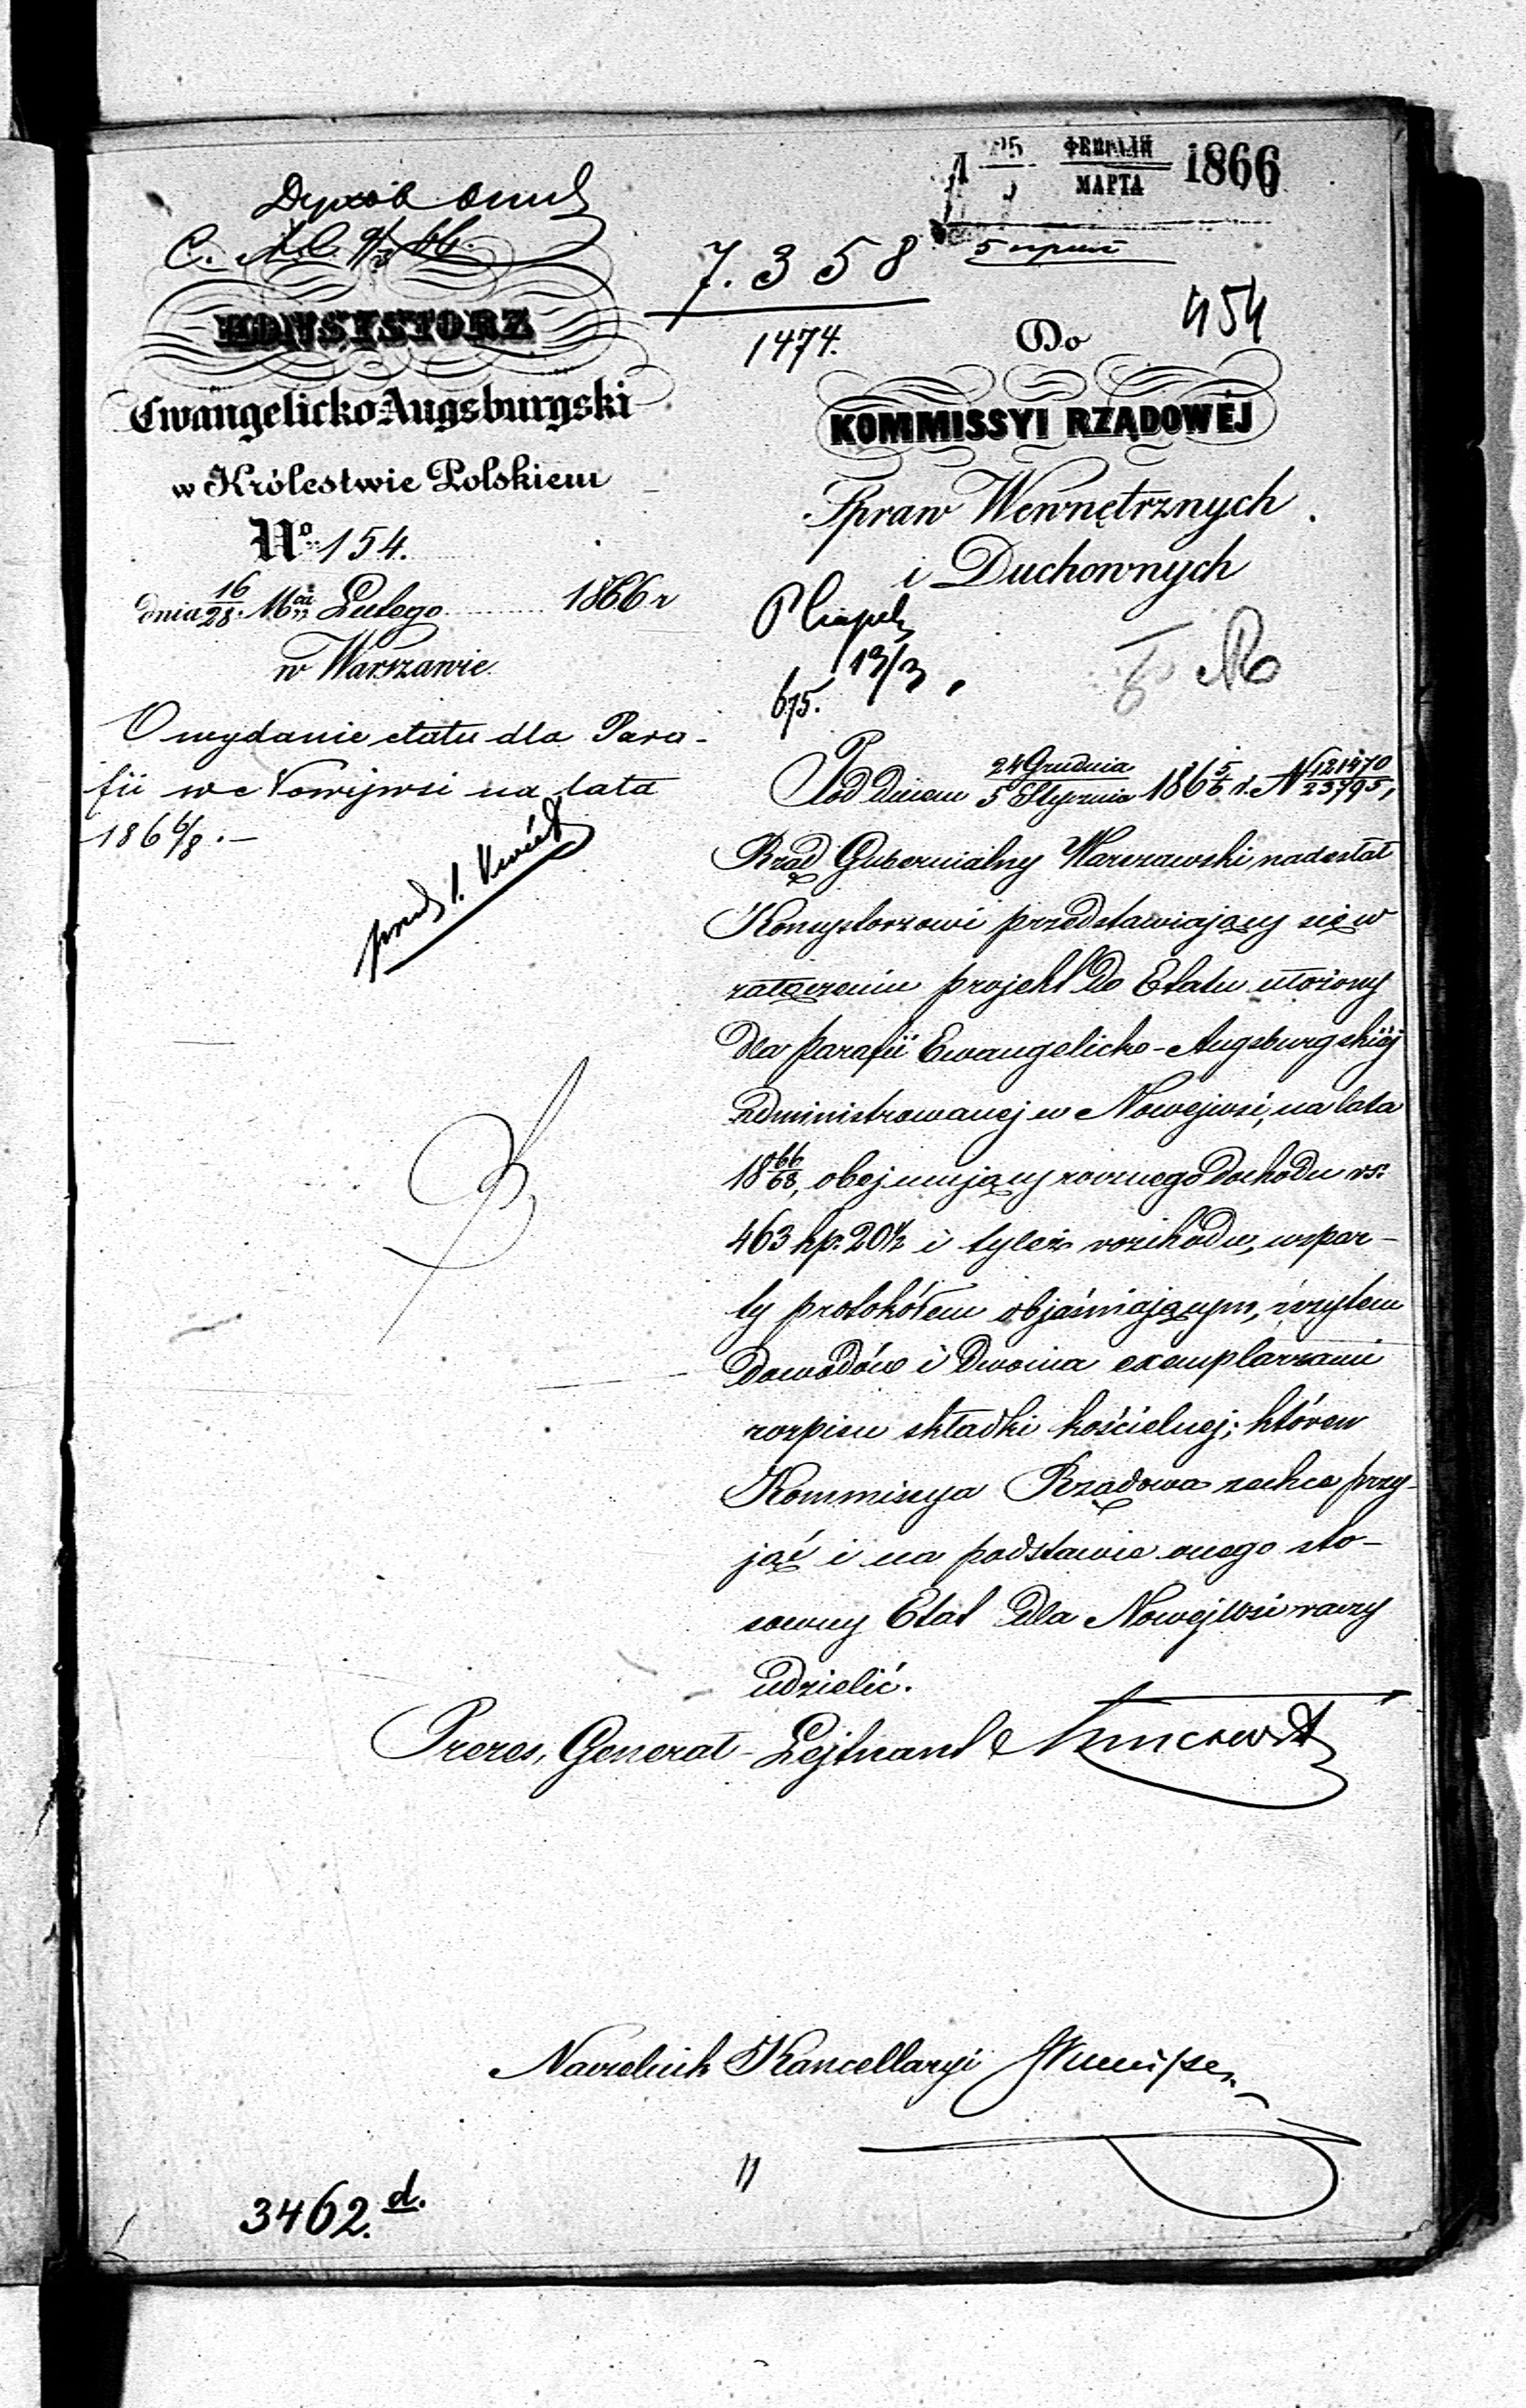 ФЕВРАЛЯ
МАРТА 1866
5 прил
7.358
1474.
454
KONSYSTORZ
Ewangelicko-Augsburgski
w Królestwie Polskiem
No 154.
dnia 16/28. Mca Lutego 1866 r
w Warszawie.
O wydanie etatu dla Para-
fii we Nowejwsi na lata
186 6/8.-
Do
KOMMISSYI RZĄDOWÉJ
Spraw Wewnętrznych
i Duchownych
13/3
675.
Pod dniem 24 Grudnia/5 Stycznia 186 5/6 r. N 121470/23795,
Rząd Gubernialny Warszawski nadesłał
Konsystorzowi przedstawiający się w
załączeniu projekt do Etatu ułożony
dla parafii Ewangelicko-Augsburgskiéj
administrowanej w Nowejwsi, na lata
18 66/68, obejmujący rocznego dochodu rs:
463 kp. 20½ i tyleż rozchodu, wspar-
ty protokółem objaśniającym, zszytem
dowodów i dwoma exemplarzami
rozpisu składki kościelnej; któren
Kommissya Rządowa zechce przy-
jąć i na podstawie onego sto-
sowny Etat dla Nowejwsi raczy
udzielić.
Prezes, Generał-Lejtnant
Naczelnik Kancellaryi
11
3462.d.